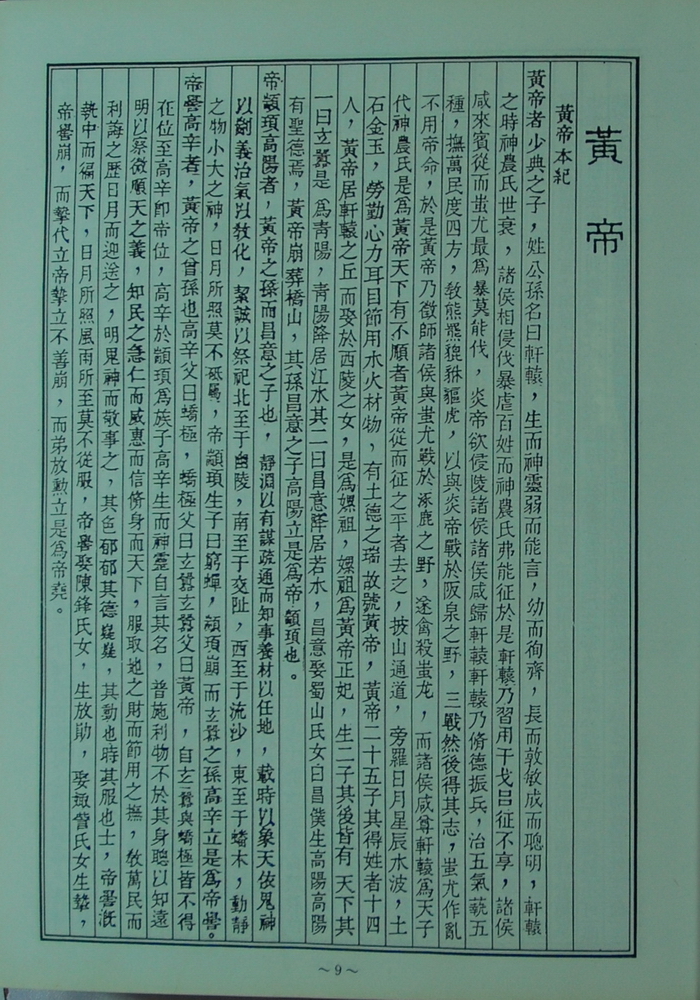 黃帝
黃帝本紀
黃帝者少典之子，姓公孫名曰軒轅，生而神靈弱而能言，幼而徇齊，長而敦敏成而聰明，軒轅
之時神農氏世衰，諸侯相侵伐暴虐百姓而神農氏弗能征於是軒轅乃習用干戈㠯征不享，諸侯
咸來賓從而蚩尤最為暴莫能伐，炎帝欲侵陵諸侯諸侯咸歸軒轅軒轅乃脩德振兵，治五氣蓺五
種，撫萬民度四方，敎熊羆貔貅貙虎，以與炎帝戰於阪泉之野，三戰然後得其志，蚩尤作亂
不用帝命，於是黃帝乃徵師諸侯與蚩尤戰於涿鹿之野，遂禽殺蚩尤，而諸侯咸尊軒轅為天子
代神農氏是為黃帝天下有不順者黃帝從而征之平者去之，披山通道，旁羅日月星辰水波，土
石金玉，勞勤心力耳目節用水火材物，有土德之瑞故號黃帝，黃帝二十五子其得姓者十四
人，黃帝居軒轅之丘而娶於西陵之女，是為嫘祖，嫘祖為黃帝正妃，生二子其後皆有天下其
一曰玄囂是為青陽，青陽降居江水其二曰昌意降居若水，昌意娶蜀山氏女曰昌僕生高陽高陽
有聖德焉，黃帝崩葬橋山，其孫昌意之子高陽立是為帝顓頊也。
帝顓頊高陽者，黃帝之孫而昌意之子也，靜淵以有謀疏通而知事養材以任地，載時以象天依鬼神
以劍義治氣以敎化，絜誠以祭祀北至于幽陵，南至于交阯，西至于流沙，東至于蟠木，動靜
之物小大之神，日月所照莫不砥屬，帝顓頊生子曰窮蟬，顓頊崩而玄囂之孫高辛立是為帝嚳。
帝嚳高辛者，黃帝之曾孫也高辛父曰蟜極，蟜極父曰玄囂玄囂父曰黃帝，自玄囂與蟜極皆不得
在位至高辛卽帝位，高辛於顓頊為族子高辛生而神靈自言其名，普施利物不於其身聰以知遠
明以察微順天之義，知民之急仁而威惠而信脩身而天下，服取地之財而節用之撫，敎萬民而
利誨之歷日月而迎送之，明鬼神而敬事之，其色郁郁其德嶷嶷，其動也時其服也士，帝嚳溉
執中而徧天下，日月所照風雨所至莫不從服，帝嚳娶陳鋒氏女，生放勛，娶娵訾氏女生摯，
帝嚳崩，而摯代立帝摯立不善崩，而弟放勲立是為帝堯。
～9～